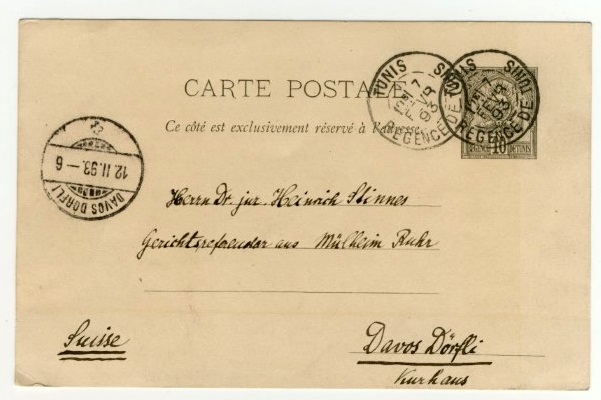 CARTE POSTALE
Ce côté est exclusivement réservé à l'adresse.
TUNIS
7
FEVR
93
REGENCE DE TUNIS
TUNIS
7
FEVR
93
REGENCE DE TUNIS
REGENCE 10 DE TUNIS
12.II.93.–6
DAVOS DÖRFLI
Herrn Dr. jur. Heinrich Stinnes
Gerichtsreferendar aus Mülheim Ruhr
Suisse
Davos Dörfli
Kurhaus